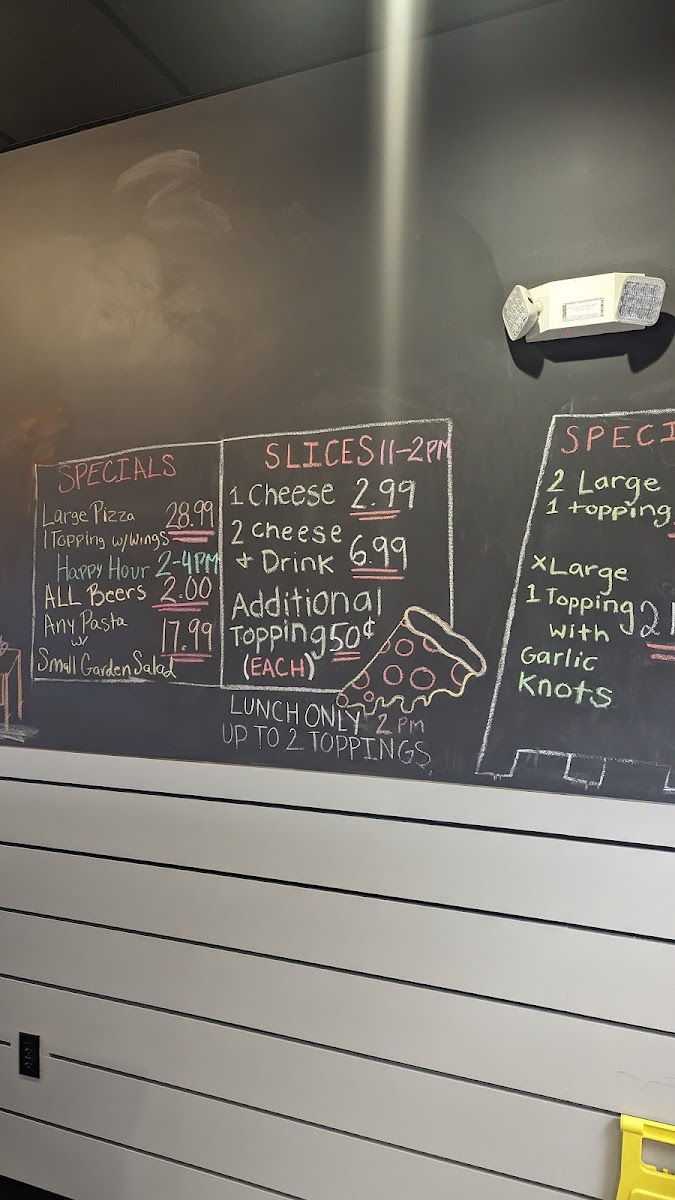 SPECIALS
Large Pizza 28.99
1 Topping w/Wings
Happy Hour 2-4PM
ALL Beers 2.00
Any Pasta
w/ 17.99
Small Garden Salad
SLICES 11-2PM
1 Cheese 2.99
2 cheese
+ Drink 6.99
Additional
Topping 50¢
(EACH)
LUNCH ONLY 2 pm
UP TO 2 TOPPINGS
SPECI
2 Large
1 topping
XLarge
1 Topping
with
Garlic
Knots